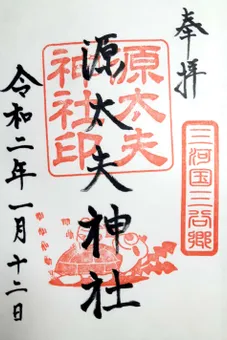 奉拝
三河国三谷郷
原太夫
神社印
源太夫神社
令和二年一月十二日